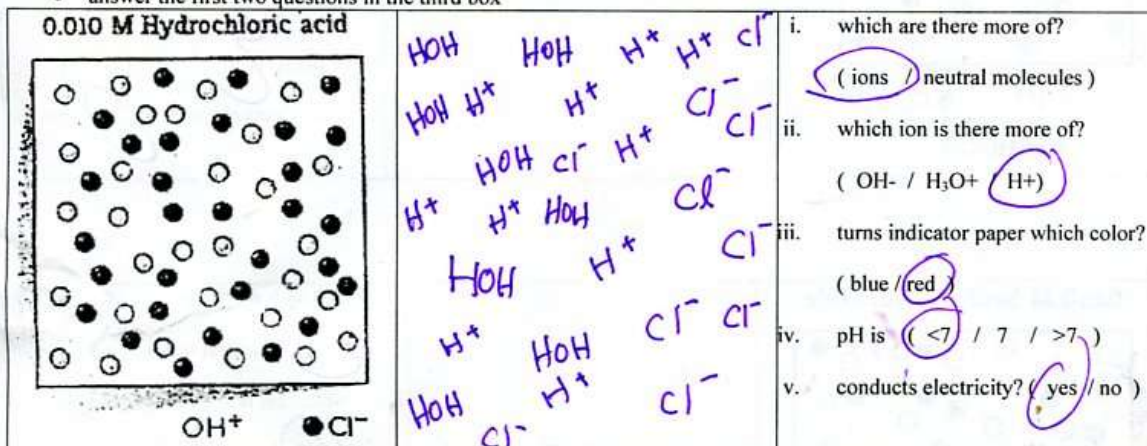 answer the first two questions in the third box
0.010 M Hydrochloric acid
OH⁺ ●Cl⁻
HOH HOH H⁺ H⁺ Cl⁻
HOH H⁺ H⁺ Cl⁻
Cl⁻
HOH Cl⁻ H⁺
H⁺ H⁺ HOH Cl⁻
HOH H⁺ Cl⁻
H⁺ HOH Cl⁻ Cl⁻
HOH H⁺ Cl⁻
Cl⁻
i. which are there more of?
( ions / neutral molecules )
ii. which ion is there more of?
( OH- / H₃O+ / H+)
iii. turns indicator paper which color?
( blue / red )
iv. pH is ( <7 / 7 / >7 )
v. conducts electricity? ( yes / no )